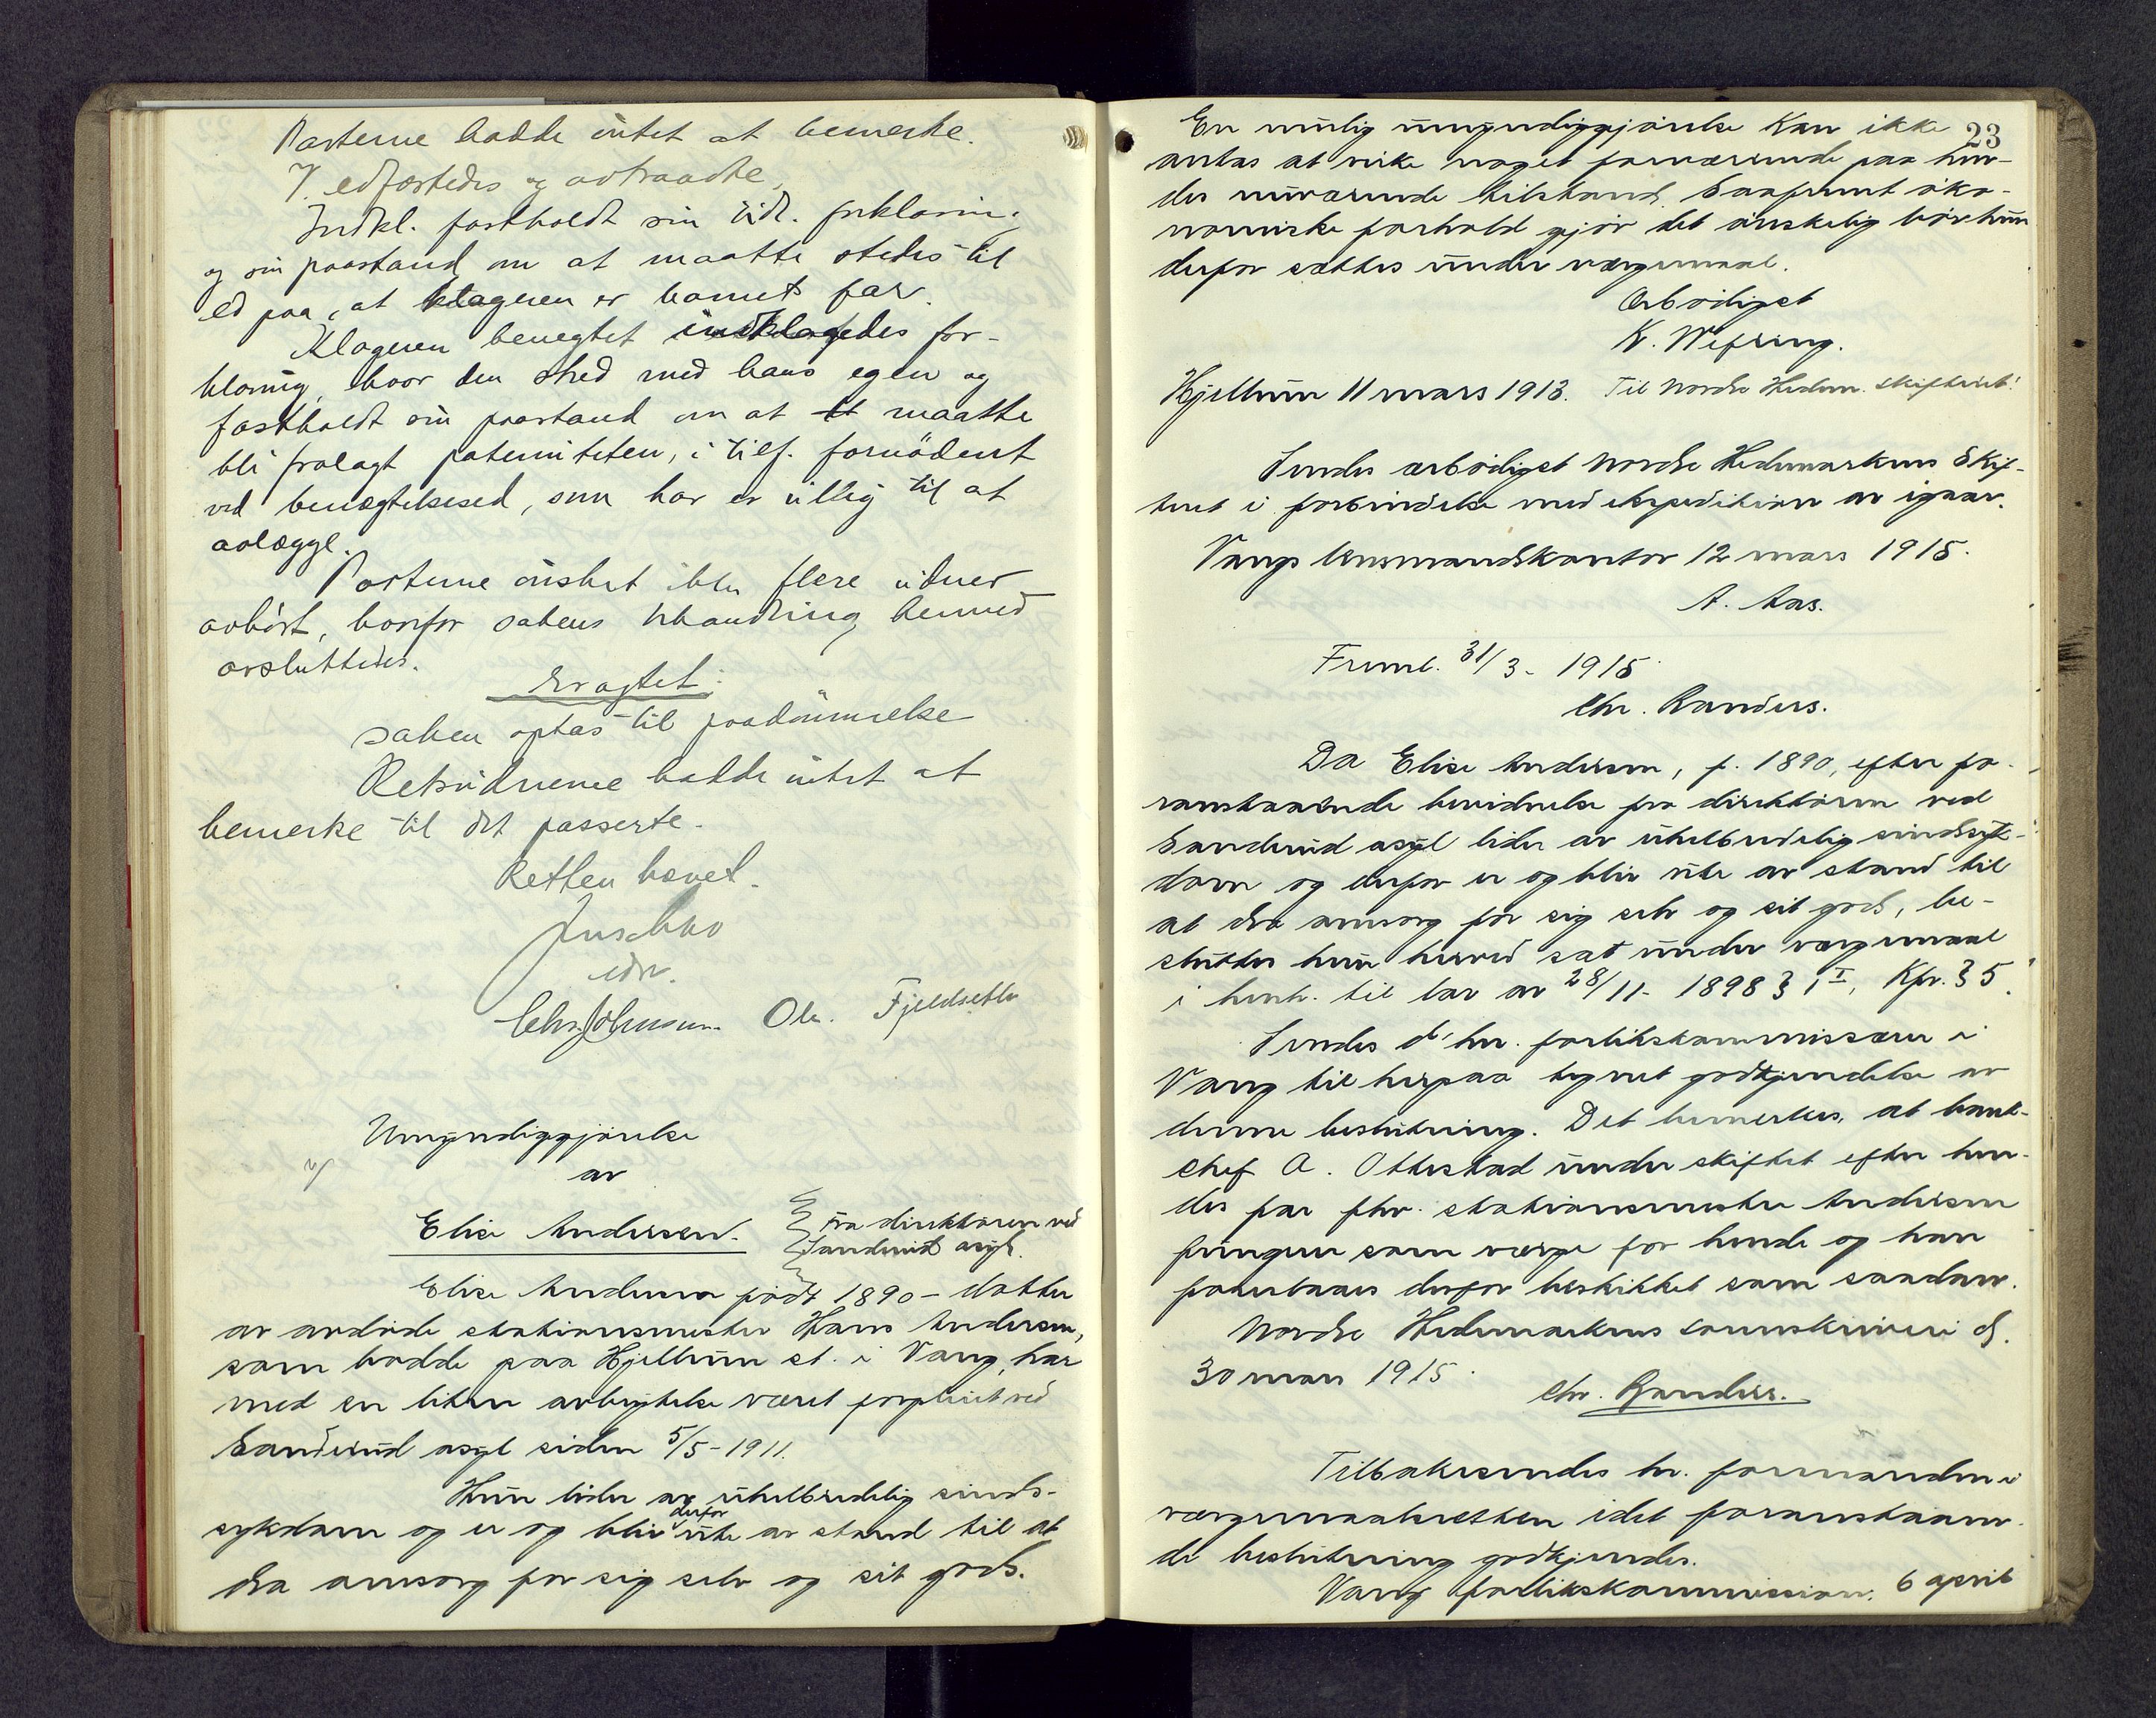 Parterne hadde intet at bemerke.
V. edfæstedes og avtraadte.
Indkl. fastholdt sin tidl. forklaring
og sin paastand om at maatte stedes til
ed paa, at klageren er barnets far.
Klageren benegtet indklagedes for-
klaring, hvor den stred med hans egen og
fastholdt sin paastand om at maatte
bli fralagt paterniteten, i tilf. fornödent
ved benægtelsesed, som han er villig til at
avlægge.
Parterne önsket ikke flere vidner
avhört, hvorfor sakens behandling hermed
avsluttedes.
Eragtet:
Saken optas til paadömmelse
Retsvidnerne hadde intet at
bemerke til det passerte.
Retten hævet.
edsv.
Chr. Johnsen. Ole Fjeldsetle
Umyndiggjörelse
av
Elise Andersen.
Fra direktören ved
Sanderud asyl.
Elise Andersen född 1890 - datter
av avdöde stationsmester Hans Andersen,
som bodde paa Hjellum st. i Vang, har
med en liten avbrytelse været forpleiet ved
Sanderud asyl siden 5/5-1911.
Hun lider av uhelbredelig sinds-
sykdom og er og blir derfor ute av stand til at
dra omsorg for sig selv og sit gods.
23
En mulig umyndiggjörelse kan ikke
antas at virke noget forværrende paa hen-
des nuværende tilstand. Saafremt öko-
nomiske forhold gjör det önskelig bör hun
derfor sættes under værgemaal.
Ærbödigst
K. Wefring.
Hjellum 11 mars 1913. Til Nordre Hedem. skifteret!
Sendes ærbödigst Nordre Hedemarkens Skif-
teret i forbindelse med ekspedition av igaar.
Vangs lensmandskontor 12 mars 1915.
A. Aas.
Freml. 31/3 - 1915.
Chr. Randers.
Da Elise Andersen, f. 1890, efter fo-
ranstaaende bevidnelse fra direktören ved
Sanderud asyl lider av uhelbredelig sindssyk-
dom og derfor er og blir ute av stand til
at dra omsorg for sig selv og sit gods, be-
sluttes hun herved sat under værgemaal
i henh. til lov av 28/11 - 1898 § 1 I, kfr. § 5.
Sendes d'hr. forlikskommissærer i
Vang til herpaa tegnet godkjendelse av
denne beslutning. Det bemerkes, at bank-
chef A. Ottestad under skiftet efter hen-
des far fhv. stationsmester Andersen
fungerer som værge for hende og han
foreslaaes derfor beskikket som saadan.
Nordre Hedemarkens sorenskriveri d.
30 mars 1915.
Chr. Randers.
Tilbakesendes hr. formanden i
værgemaalsretten idet foranstaaen-
de beslutning godkjendes.
Vang forlikskommission. 6 april